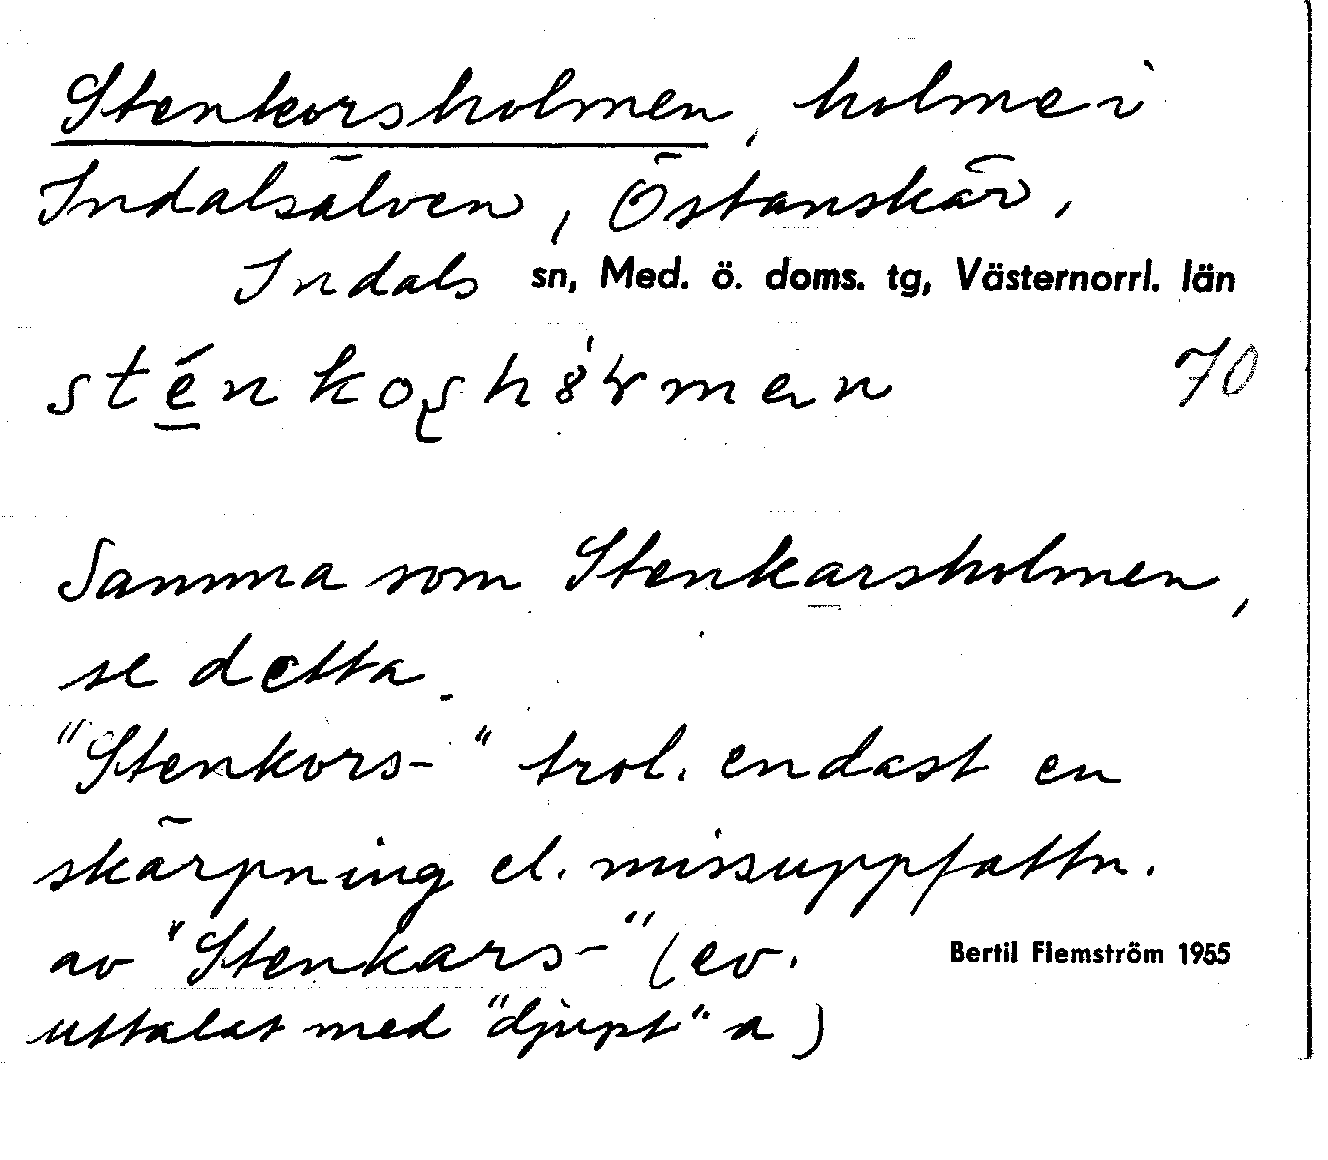 Stenkorsholmen, holme i
Indalsälven, Östanskär,
Indals sn, Med. ö. doms. tg, Västernorrl. län
70
Samma som Stenkarsholmen,
se detta.
"Stenkors-" trol. endast en
skärpning el. missuppfattn.
av "Stenkars-" (ev.
Bertil Flemström 1955
uttalat med "djupt" a)